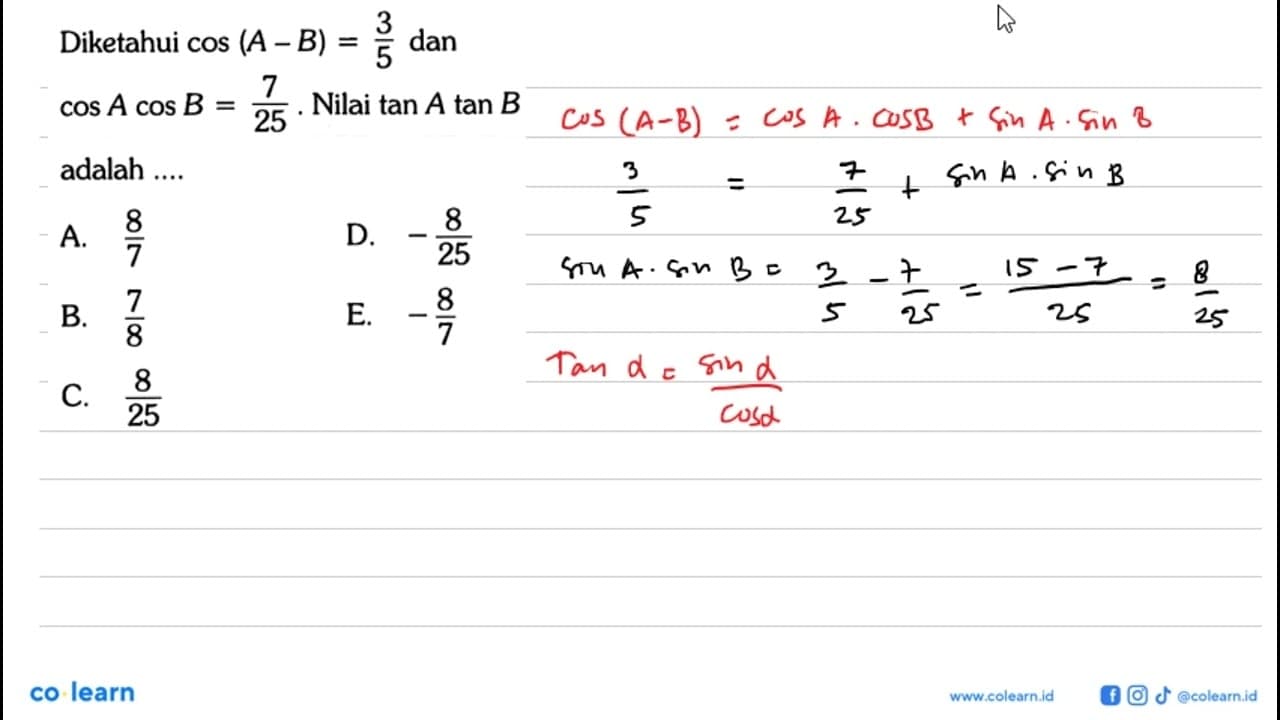 Diketahui cos (A – B) = 3/5 dan
cos A cos B = 7/25 . Nilai tan A tan B
adalah ....
A. 8/7
D. – 8/25
B. 7/8
E. – 8/7
C. 8/25
cos (A-B) = cos A . cos B + sin A . sin B
3/5 = 7/25 + sin A . sin B
sin A . sin B = 3/5 - 7/25 = 15 - 7/25 = 8/25
Tan α = sin α/cos α
co learn
www.colearn.id
@colearn.id